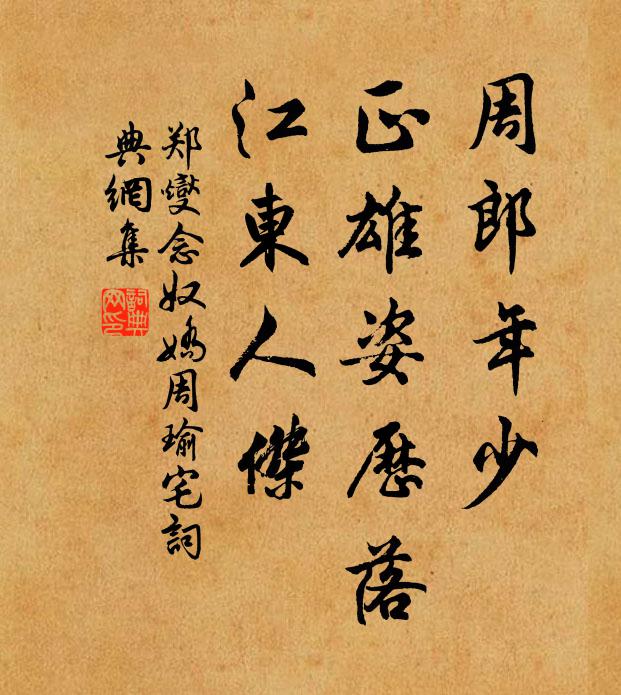 周郎年少
正雄姿历落
江東人傑
郑燮念奴嬌周瑜宅詞
典網集
詞典網印